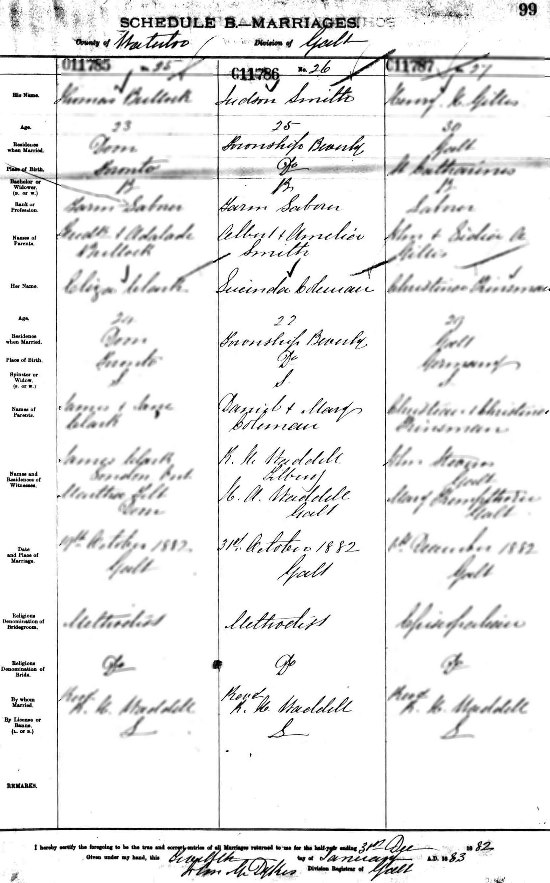 99
SCHEDULE B.—MARRIAGES.
County of Waterloo Division of Galt
011785 No. 25
011786 No. 26
011787 No. 27
His Name.
Thomas Bullock
Judson Smith
Henry Gillis
Age.
23
25
30
Residence when Married.
Dom
Township Beverly
Galt
Place of Birth.
Toronto
Do
St Catharines
Bachelor or Widower. (B. or W.)
B
B
B
Rank or Profession.
Farm Labour
Farm Labour
Labour
Names of Parents.
& Adelade
Bullock
Albert & Amelia
Smith
John &
Gillis
Her Name.
Eliza Clark
Lucinda Coleman
Christina Prinsman
Age.
24
22
29
Residence when Married.
Dom
Township Beverly
Galt
Place of Birth.
Toronto
Do
Germany
Spinster or Widow. (S. or W.)
S
S
S
Names of Parents.
James & Jane
Clark
Daniel & Mary
Coleman
Christian & Christina
Prinsman
Names and Residences of Witnesses.
James Clark
London Ont
Martha
Dom
K. H. Waddell
H. A. Waddell
Galt
John
Galt
Mary
Galt
Date and Place of Marriage.
October 1882
Galt
31st October 1882
Galt
6th December 1882
Galt
Religious Denomination of Bridegroom.
Methodist
Methodist
Episcopalian
Religious Denomination of Bride.
Do
Do
Do
By whom Married.
Revd
R. H. Waddell
Revd
R. H. Waddell
Revd
R. H. Waddell
By License or Banns. (L. or B.)
L
L
L
REMARKS.
I hereby certify the foregoing to be the true and correct entries of all Marriages returned to me for the half-year ending 31st Dec 1882
Given under my hand, this Twelfth day of January A.D. 1883
John M. Division Registrar of Galt